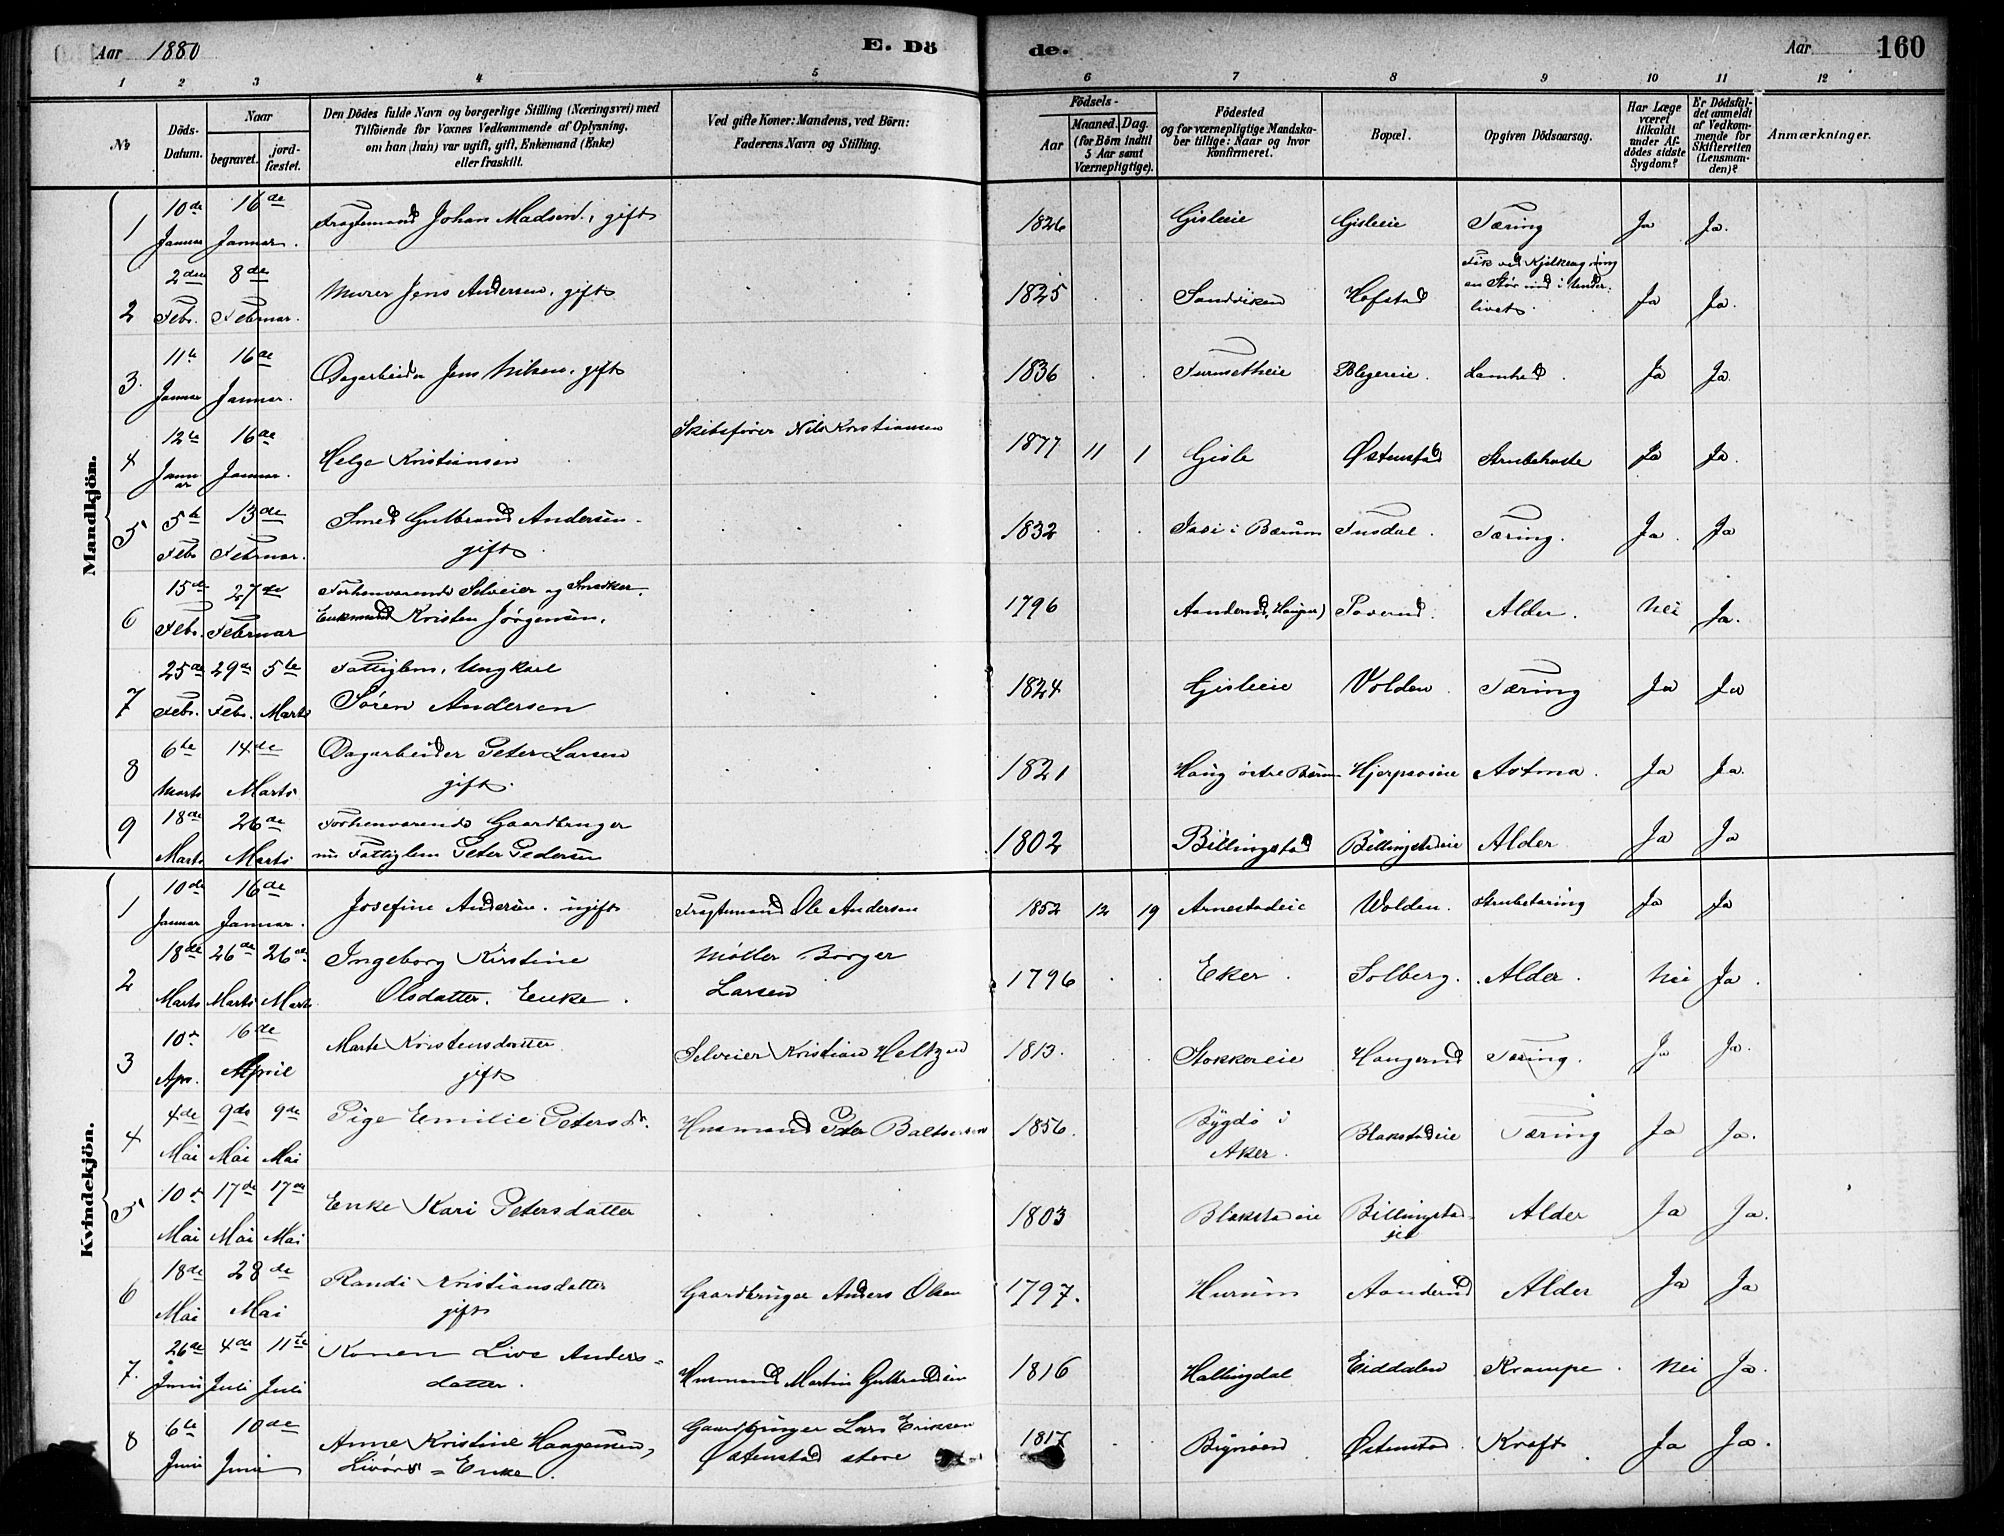 Aar 1880 E. Dö de. Aar 160
1 2 3 4 5 6 7 8 9 10 11 12
No
Döds-Datum.
Naar
begravet. jordfæstet.
Den Dödes fulde Navn og borgerlige Stilling (Næringsvei) med
Tilföiende for Voxnes Vedkommende af Oplysning,
om han (hun) var ugift, gift, Enkemand (Enke)
eller fraskilt.
Ved gifte Koner: Mandens, ved Börn:
Faderens Navn og Stilling.
Födsels-
Aar
Maaned. Dag.
(for Börn indtil
5 Aar samt
Værnepligtige).
Födested
og for værnepligtige Mandska-
ber tillige: Naar og hvor
konfirmeret.
Bopæl.
Opgiven Dödsaarsag.
Har Læge
været
tilkaldt
under Af-
dödes sidste
Sygdom?
Er Dödsfal-
det anmeldt
af Vedkom-
mende for
Skifteretten
(Lensman-
den)?
Anmærkninger.
Mandkjön.
1 10de Januar 16de Januar. Fragtemand Johan Madsen, gift 1826 Gisleeie Gisleeie Tæring Ja Ja.
2 2den Febr. 8de Februar. Murer Jens Andersen, gift 1825 Sandviken Hofstad Fik ved Kjelkeagning
en Stör ind i Under-
livet. Ja Ja.
3. 11te Januar 16de Januar. Dagarbeider Jens Nilsen, gift 1836 Blegereie. Ja Ja.
4 12te Januar 16de Januar. Helge Kristiansen Skibsfører Nils Kristiansen 1877 11 1 Gisle Østenstad Strubehoste Ja Ja.
5 5te Febr 13de Februar. Smed Gulbrand Andersen.
gift. 1832 i Bærum Tusdal. Tæring. Ja. Ja
6 15de Febr. 27de Februar Forhenværende Selveier og
Enkemand Kristen Jørgensen. 1796 Alder. Nei Ja.
7 25de Febr. 29de Febr. 5te Marts Fattiglem, Ungkarl
Søren Andersen 1824 Gisleeie Volden Tæring Ja Ja
8 6te Marts 14de Marts Dagarbeider Peter Larsen
gift. 1821 Haug østre Bærum Astma. Ja Ja.
9 18de Marts 26de Marts Forhenværende Gaardbruger
nu Fattiglem Peter Pedersen 1802 Billingstad Billingstadeie Alder Ja Ja
Kvindekjön.
1 10de Januar 16de Januar. Josefine Andersen. ugift Fragtemand Ole Andersen 1852 12 19 Arnestadeie Wolden. Strubetæring Ja Ja
2 18de Marts 26de Marts 26de Marts Ingeborg Kirstine
Olsdatter. Enke. Møller Borger
Larsen 1796 Eker. Solberg. Alder. Nei Ja.
3 10de Apr. 16de April Marte Kristensdatter
gift Selveier Kristian Heltzen 1813. Stokkereie Haugerud Tæring. Ja Ja.
4 4de Mai 9de Mai 9de Mai Pige Emilie Petersdr. Husmand Peter Baltsersen 1856. Bygdø i
Aker. Blakstadeie Tæring Ja Ja.
5 10de Mai 17de Mai 17de Mai Enke Kari Petersdatter 1803 Blakstadeie Billingstad-
eie Alder Ja Ja.
6 18de Mai 28de Mai Randi Kristiansdatter
gift Gaardbruger Anders Olsen 1797. Hurum Aanderud Alder Ja Ja
7. 26de Juni 4de Juli 11te Juli Konen Live Anders-
datter. Husmand Martin Gulbrandsen 1816 Hallingdal Eiddalen Krampe. Nei Ja.
8 6te Juni 10de Juni Anne Kristine Haagensen,
Livörs-Enke. Gaardbruger Lars Eriksen
Østenstad store 1817 Østenstad Kræft Ja Ja.